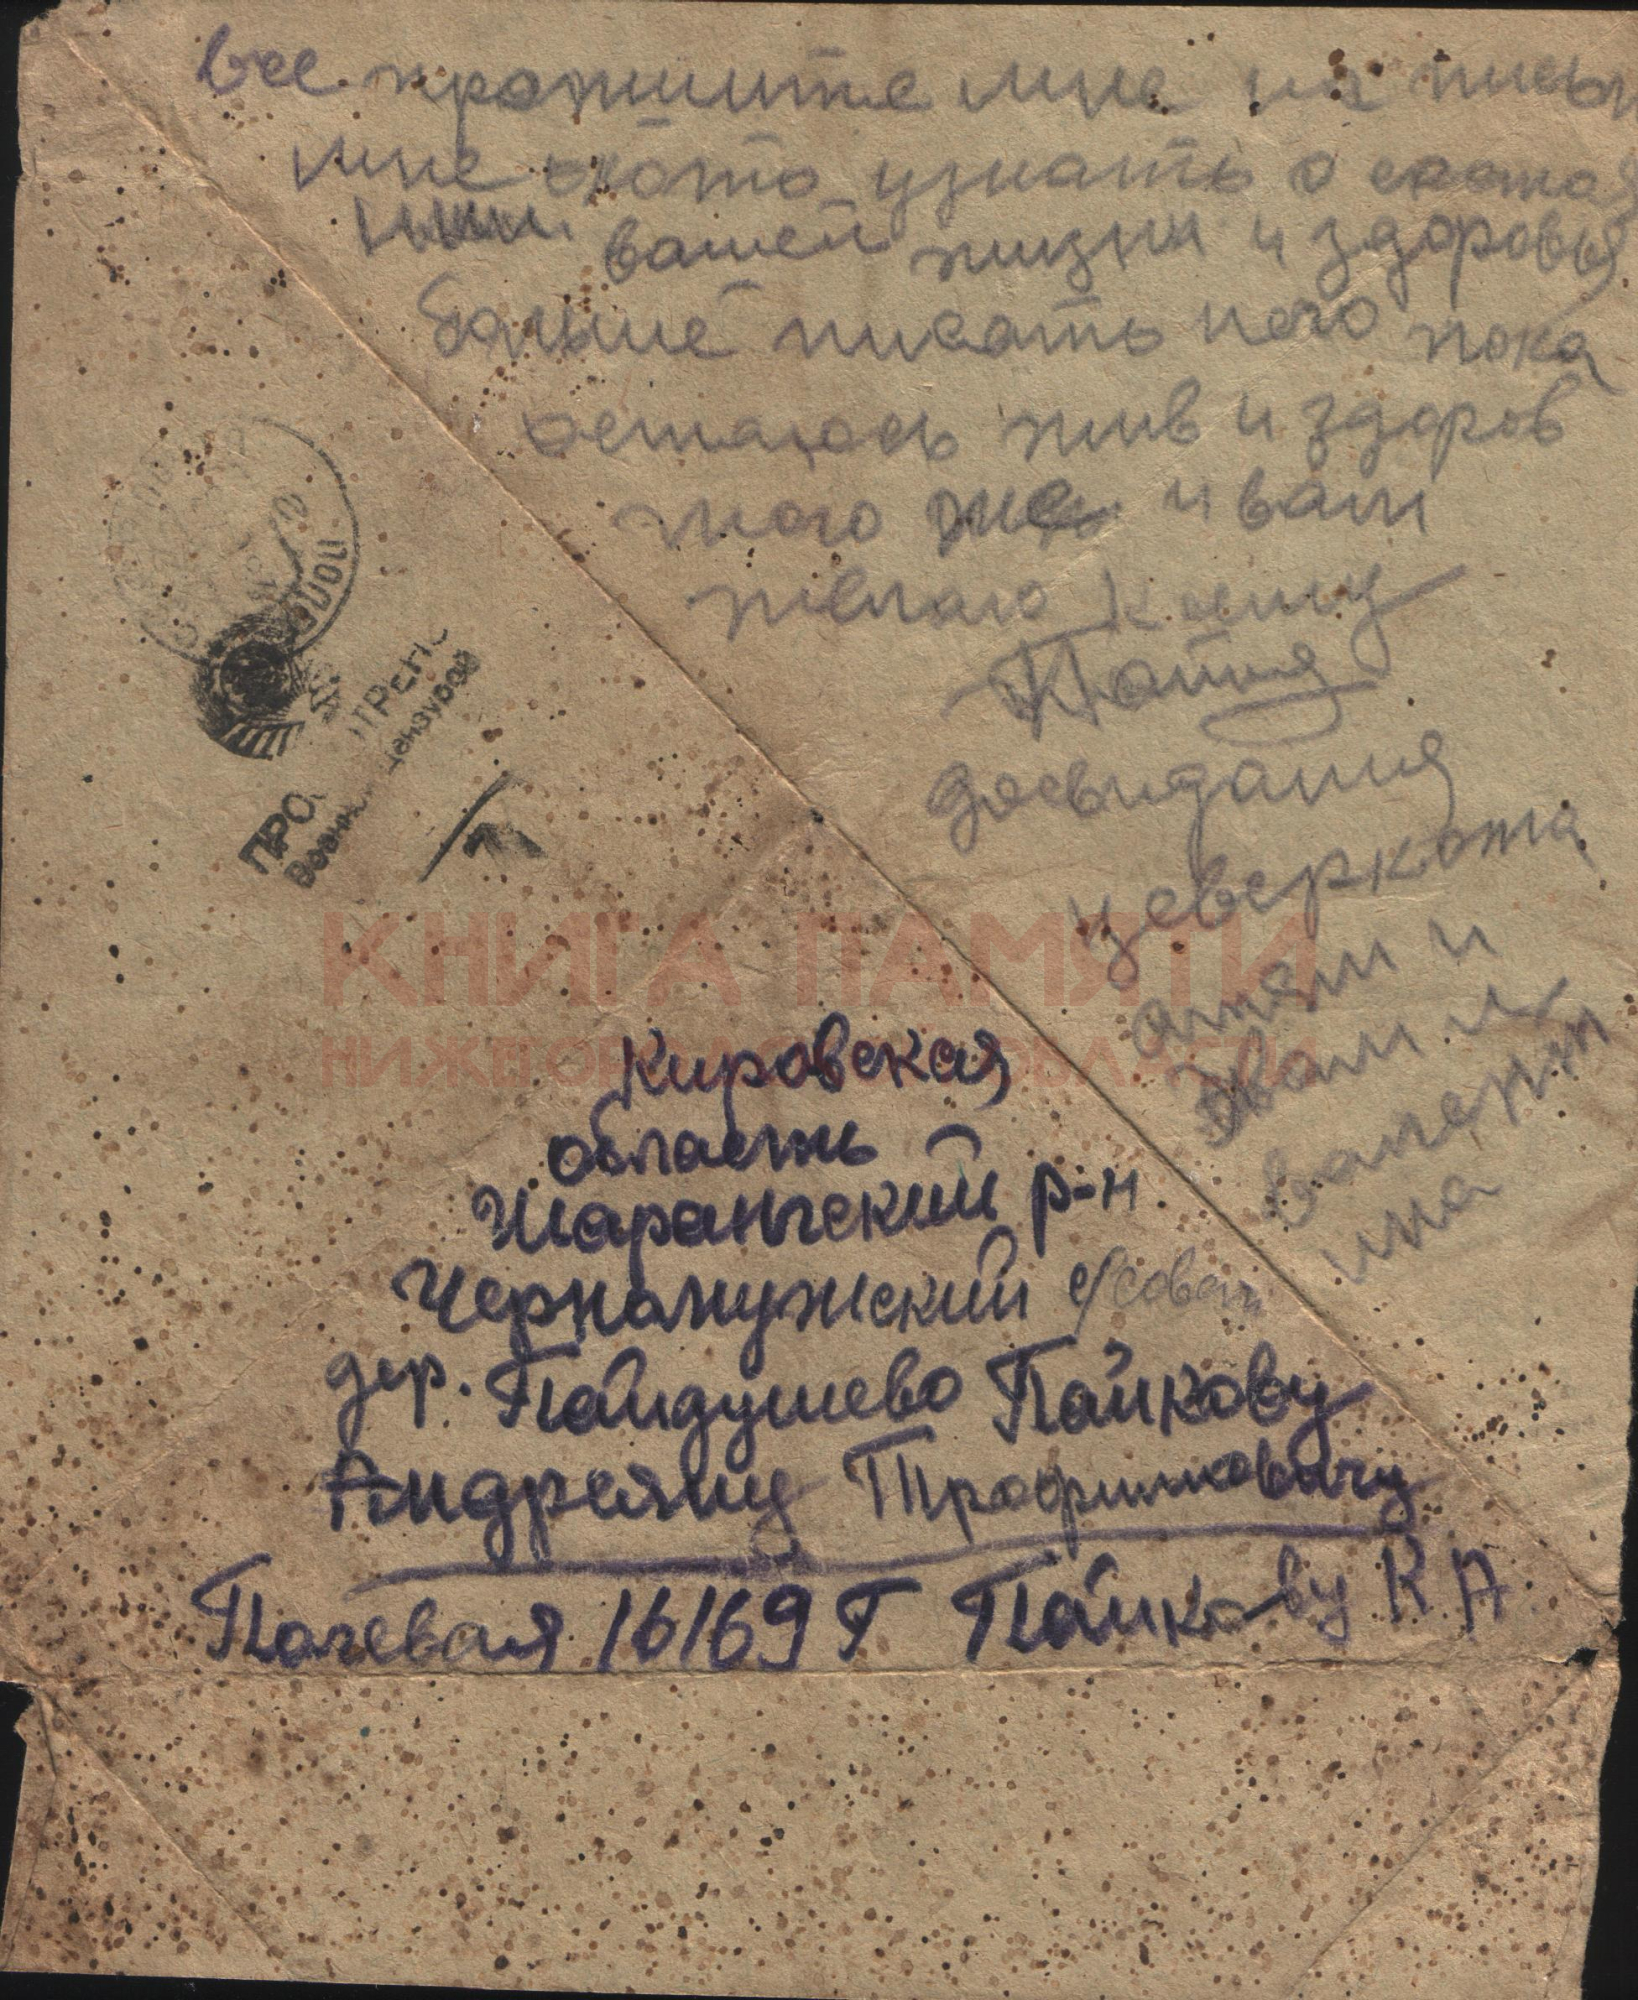 все пропишите мне на письм
мне охото узнать о состоя
нии вашей жизни и здоровья
больше писать нечо пока
остаюсь жив и здоров
того же и вам
желаю к сему
Пайков
досвидания
ПРОСМОТРЕНО
Военной Цензурой
КНИГА ПАМЯТИ
НИЖЕГОРОДСКОЙ ОБЛАСТИ
Кировская
область
Шарангский р-н
Черномужский с/совет
дер. Пайдушево Пайкову
Андреяну Трофимовичу
Полевая 16169 Г Пайкову К А